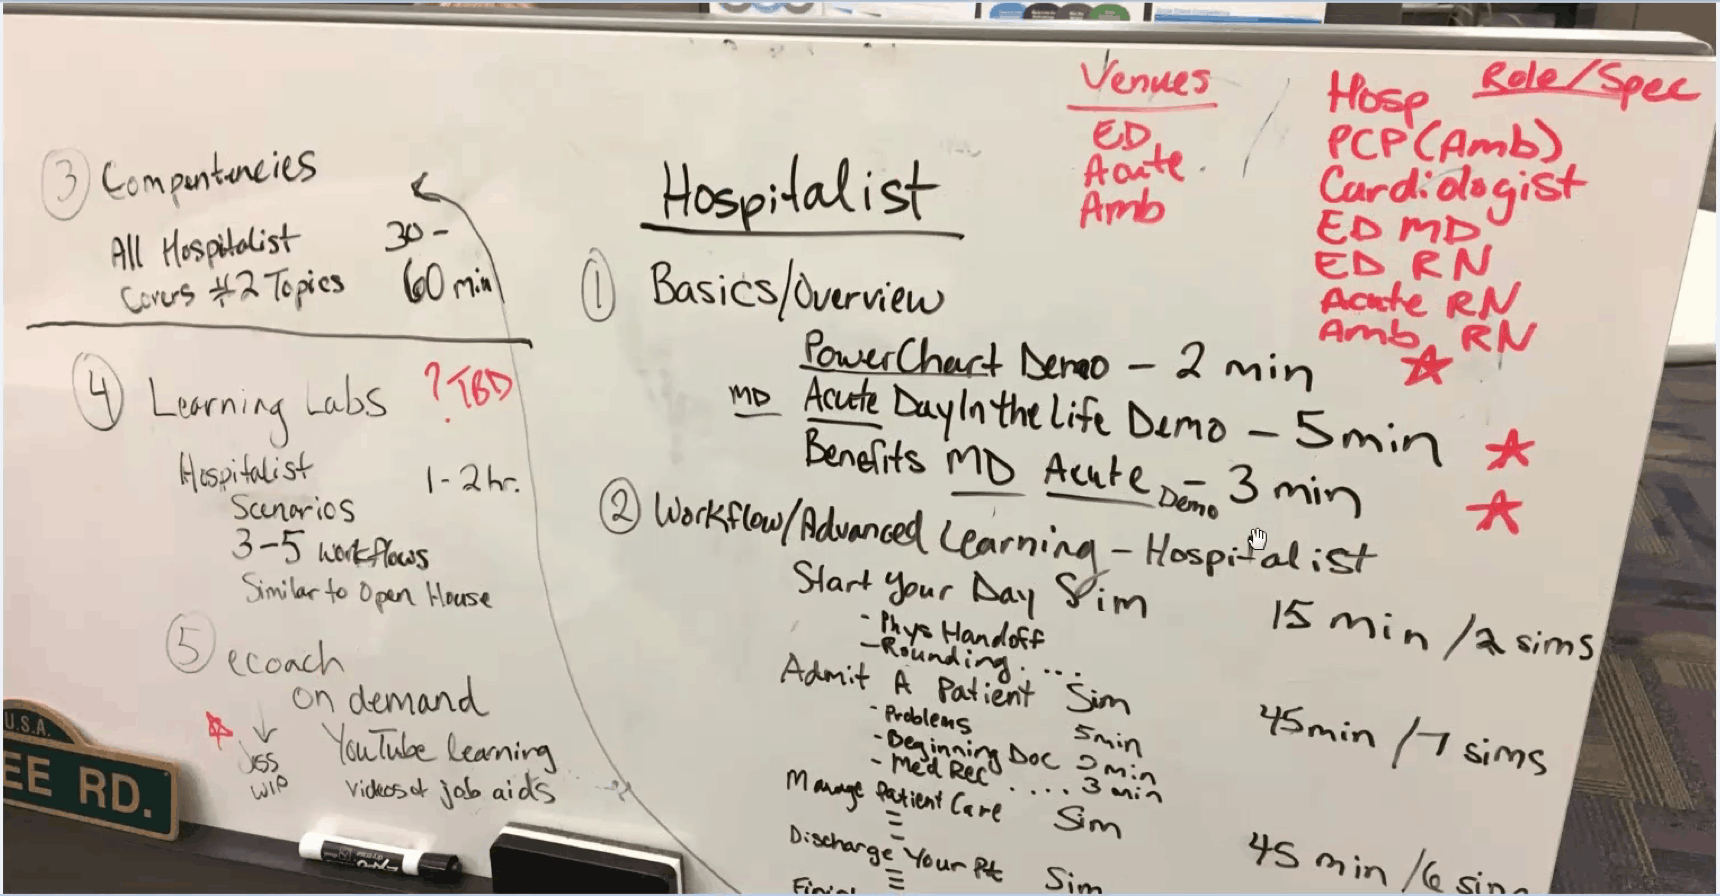 Venues
ED
Acute
Amb
Role/Spec
Hosp
PCP (Amb)
Cardiologist
ED MD
ED RN
Acute RN
Amb RN
Hospitalist
① Basics/Overview
PowerChart Demo - 2 min
MD Acute Day In the Life Demo - 5 min
Benefits MD Acute Demo - 3 min
② Workflow/Advanced Learning - Hospitalist
Start Your Day Sim 15 min /2 sims
- Phys Handoff
- Rounding ....
Admit A Patient Sim 45 min /7 sims
- Problems 5min
- Beginning Doc 2 min
- Med Rec .... 3 min
Manage Patient Care Sim 45 min /6 sim
Discharge Your Pt Sim
③ Compentencies
All Hospitalist 30-
Covers #2 Topics 60 min
④ Learning Labs ? TBD
Hospitalist 1-2 hr.
Scenarios
3-5 workflows
Similar to Open House
⑤ ecoach
on demand
YouTube learning
Videos of job aids
JSS
WIP
U.S.A.
EE RD.